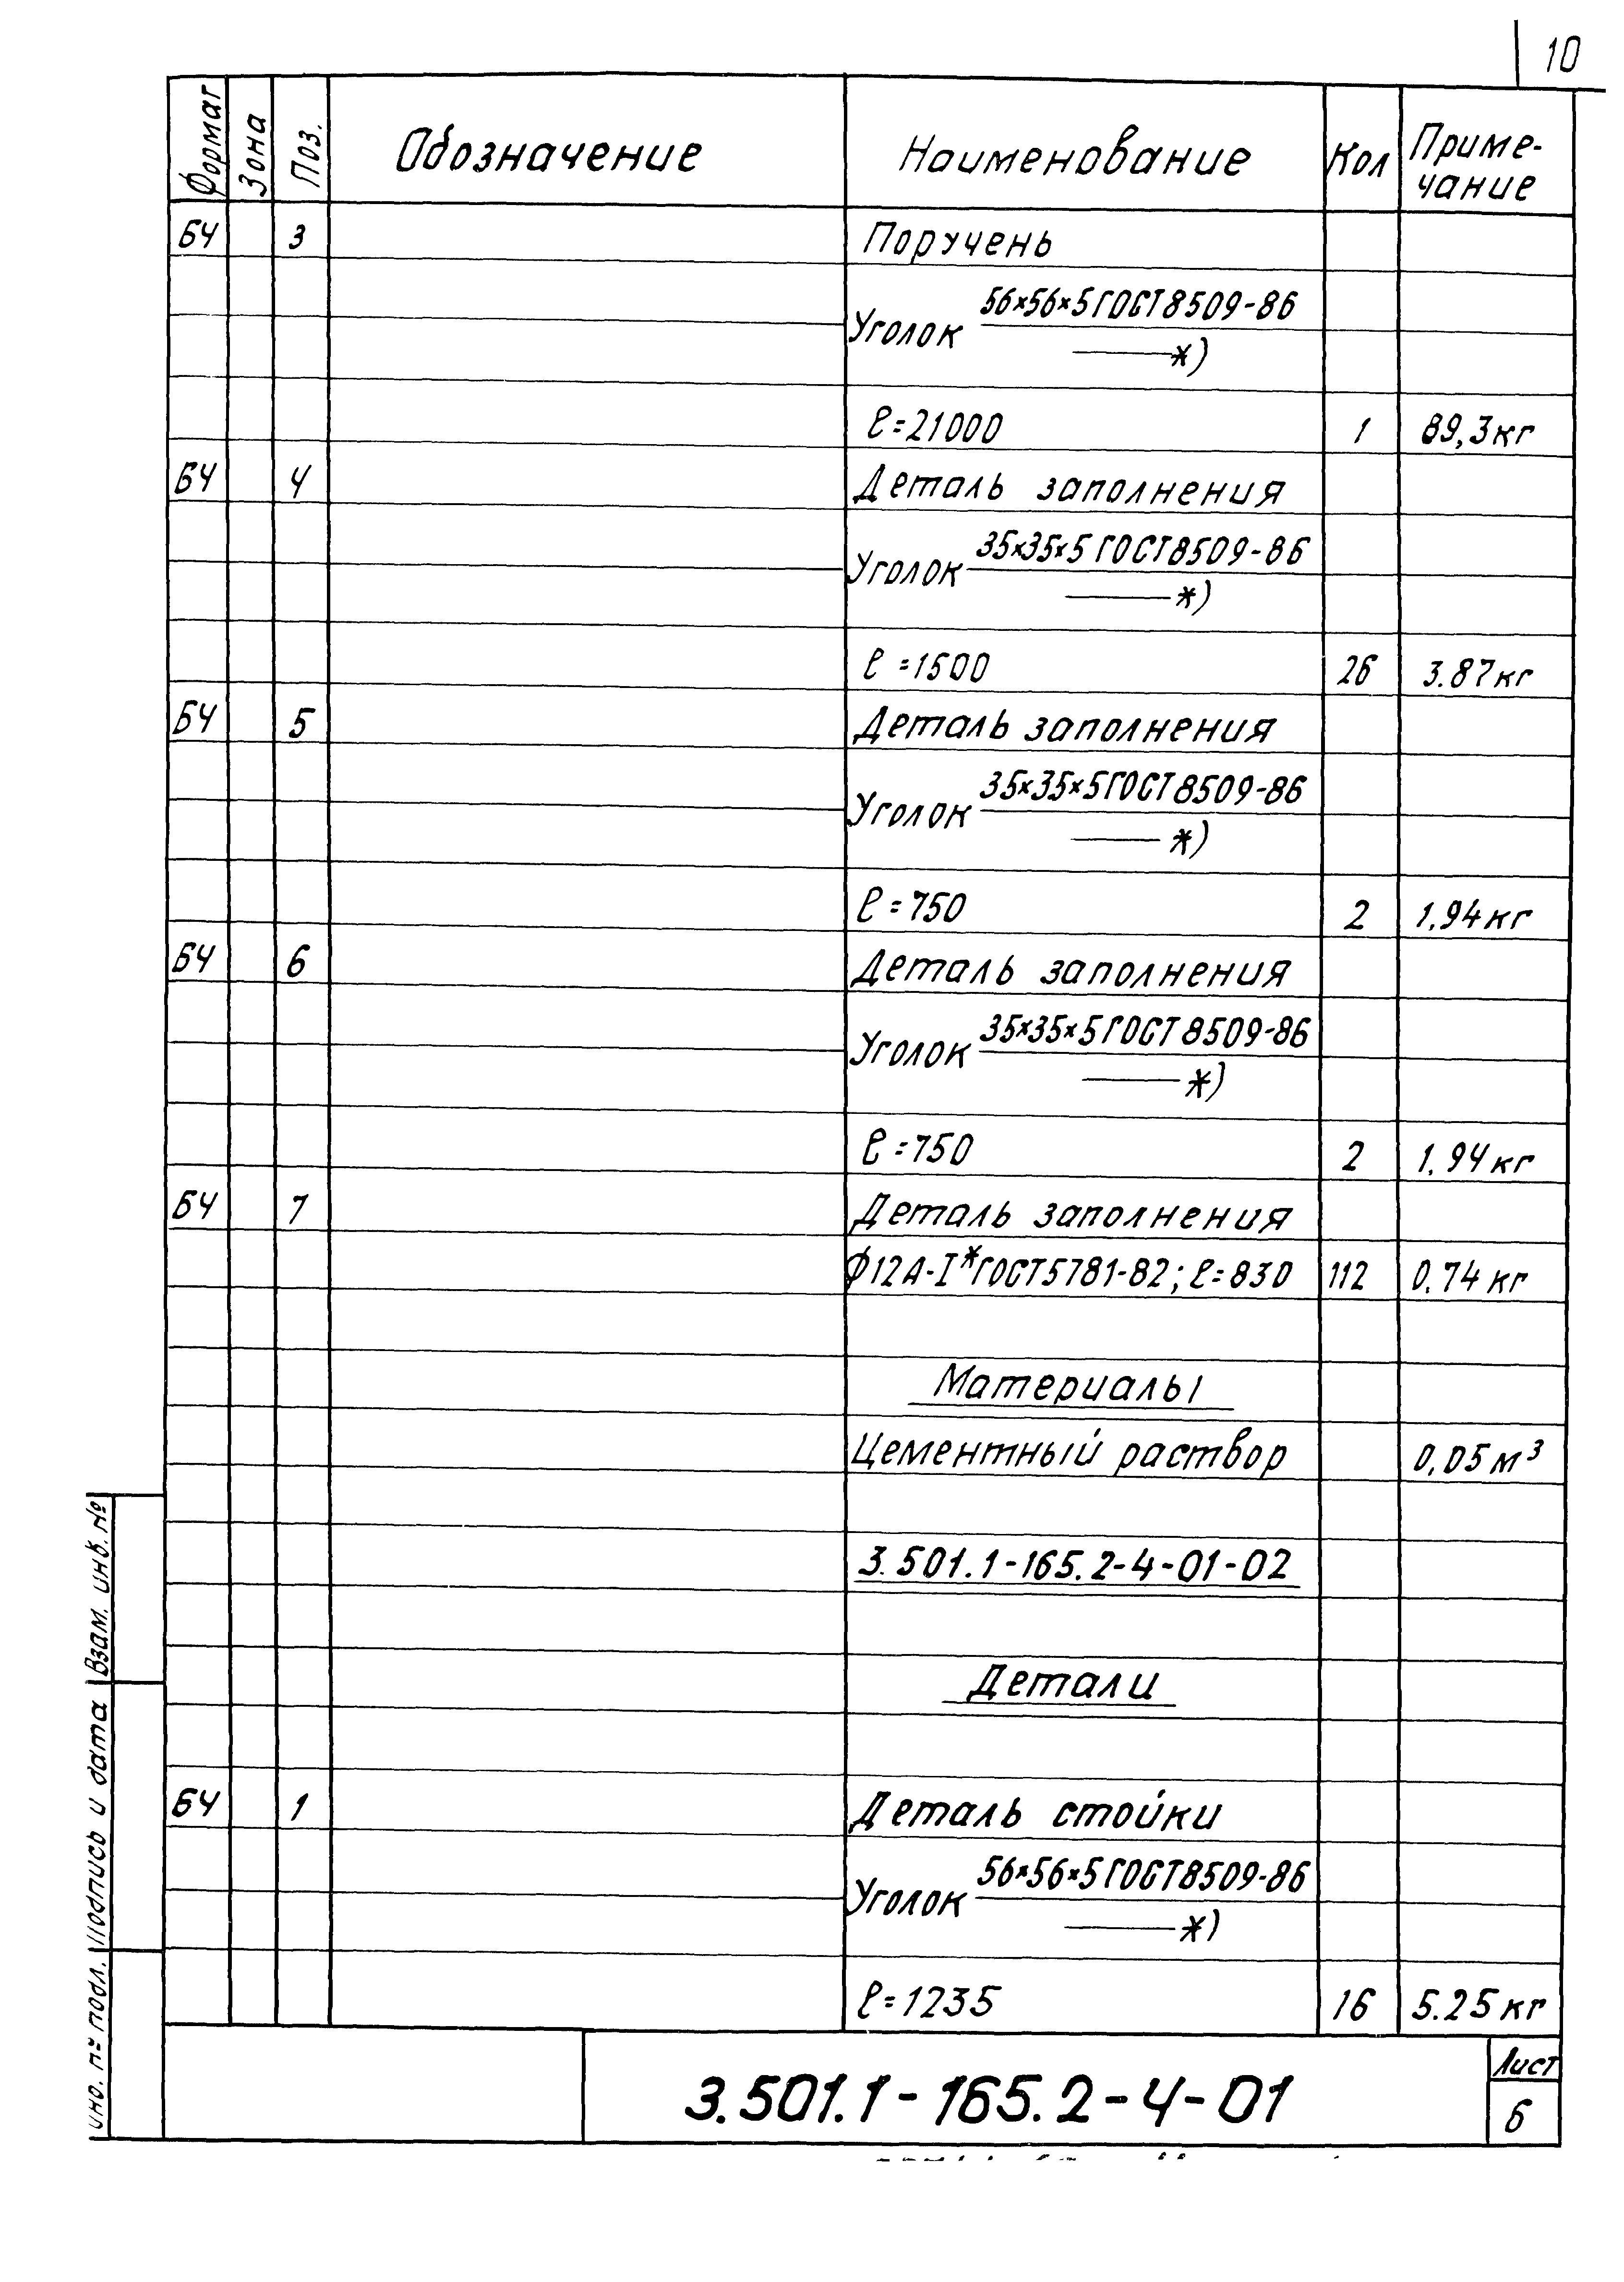 10
Формат Зона Поз. Обозначение Наименование Кол Приме-
чание
БЧ 3 Поручень
Уголок 56×56×5 ГОСТ 8509-86
*)
ℓ=21000 1 89,3кг
БЧ 4 Деталь заполнения
Уголок 35×35×5 ГОСТ 8509-86
*)
ℓ=1500 26 3.87кг
БЧ 5 Деталь заполнения
Уголок 35×35×5 ГОСТ 8509-86
*)
ℓ=750 2 1.94кг
БЧ 6 Деталь заполнения
Уголок 35×35×5 ГОСТ 8509-86
*)
ℓ=750 2 1.94кг
БЧ 7 Деталь заполнения
Ф12А-I* ГОСТ 5781-82; ℓ=830 112 0.74 кг
Материалы
Цементный раствор 0,05м³
3.501.1-165.2-4-01-02
Детали
БЧ 1 Деталь стойки
Уголок 56×56×5 ГОСТ 8509-86
*)
ℓ=1235 16 5.25кг
3.501.1-165.2-4-01
Лист
6
Взам. инв. №
Подпись и дата
инв. № подл.